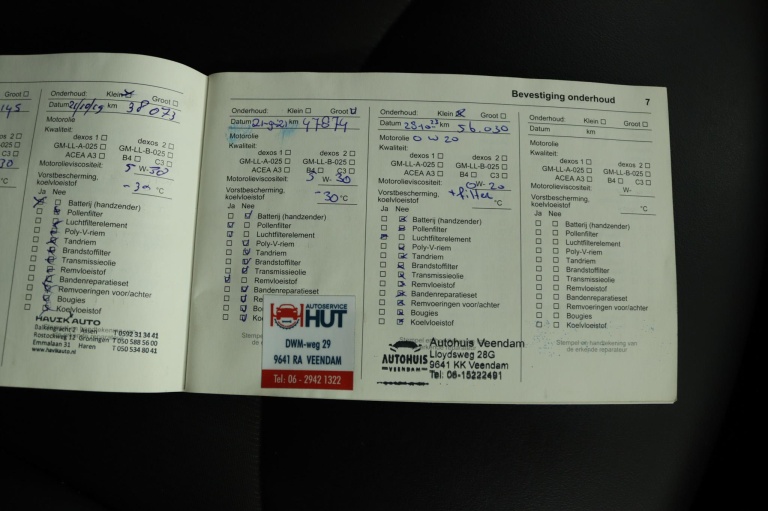 Groot
145
dexos 2
GM-LL-B-025
C3
30
°C
Onderhoud: Klein Groot
Datum km 38073
Motorolie
Kwaliteit:
dexos 1 dexos 2
GM-LL-A-025 GM-LL-B-025
ACEA A3 B4 C3
Motorolieviscositeit: 5 W- 30
Vorstbescherming,
koelvloeistof -30 °C
Ja Nee
Batterij (handzender)
Pollenfilter
Luchtfilterelement
Poly-V-riem
Tandriem
Brandstoffilter
Transmissieolie
Remvloeistof
Bandenreparatieset
Remvoeringen voor/achter
Bougies
Koelvloeistof
HAVIK AUTO
Assen T 0592 31 34 41
Kostockweg 12 Groningen T 050 588 56 00
Emmalaan 31 Haren T 050 534 80 41
www.havikauto.nl
Bevestiging onderhoud 7
Onderhoud: Klein Groot
Datum km 47874
Motorolie
Kwaliteit:
dexos 1 dexos 2
GM-LL-A-025 GM-LL-B-025
ACEA A3 B4 C3
Motorolieviscositeit: 5 W- 30
Vorstbescherming,
koelvloeistof -30 °C
Ja Nee
Batterij (handzender)
Pollenfilter
Luchtfilterelement
Poly-V-riem
Tandriem
Brandstoffilter
Transmissieolie
Remvloeistof
Bandenreparatieset
AUTOSERVICE
HUT
DWM-weg 29
9641 RA VEENDAM
Tel: 06 - 2942 1322
Onderhoud: Klein Groot
Datum km 56.030
Motorolie 0 W 20
Kwaliteit:
dexos 1 dexos 2
GM-LL-A-025 GM-LL-B-025
ACEA A3 B4 C3
Motorolieviscositeit: 0W- 20
Vorstbescherming, + filter
koelvloeistof °C
Ja Nee
Batterij (handzender)
Pollenfilter
Luchtfilterelement
Poly-V-riem
Tandriem
Brandstoffilter
Transmissieolie
Remvloeistof
Bandenreparatieset
Remvoeringen voor/achter
Bougies
Koelvloeistof
AUTOHUIS
VEENDAM
Autohuis Veendam
Lloydsweg 28G
9641 KK Veendam
Tel: 06-15222491
Onderhoud: Klein Groot
Datum km
Motorolie
Kwaliteit:
dexos 1 dexos 2
GM-LL-A-025 GM-LL-B-025
ACEA A3 B4 C3
Motorolieviscositeit:
W-
Vorstbescherming,
koelvloeistof °C
Ja Nee
Batterij (handzender)
Pollenfilter
Luchtfilterelement
Poly-V-riem
Tandriem
Brandstoffilter
Transmissieolie
Remvloeistof
Bandenreparatieset
Remvoeringen voor/achter
Bougies
Koelvloeistof
Stempel en handtekening van
de erkende reparateur